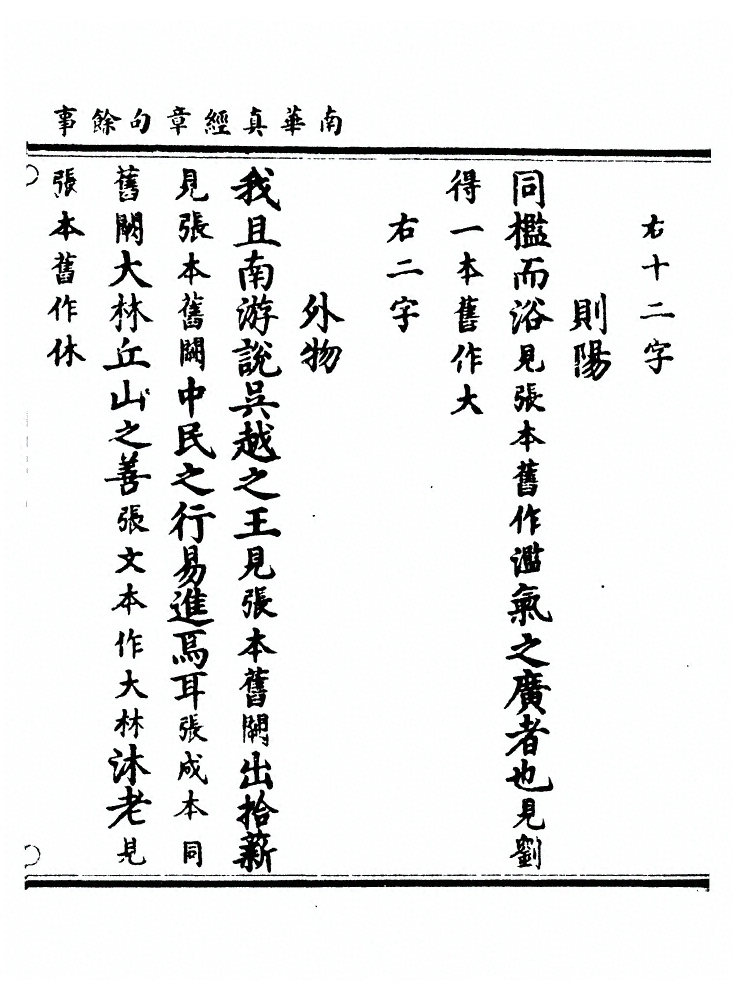 南華真經章句餘事
右十二字
則陽
同檻而浴見張本舊作濫氣之廣者也見劉
得一本舊作大
右二字
外物
我且南游說吳越之王見張本舊闕出拾薪
見張本舊闕中民之行易進焉耳張成本同
舊闕大林丘山之善張文本作大林沐老見
張本舊作休